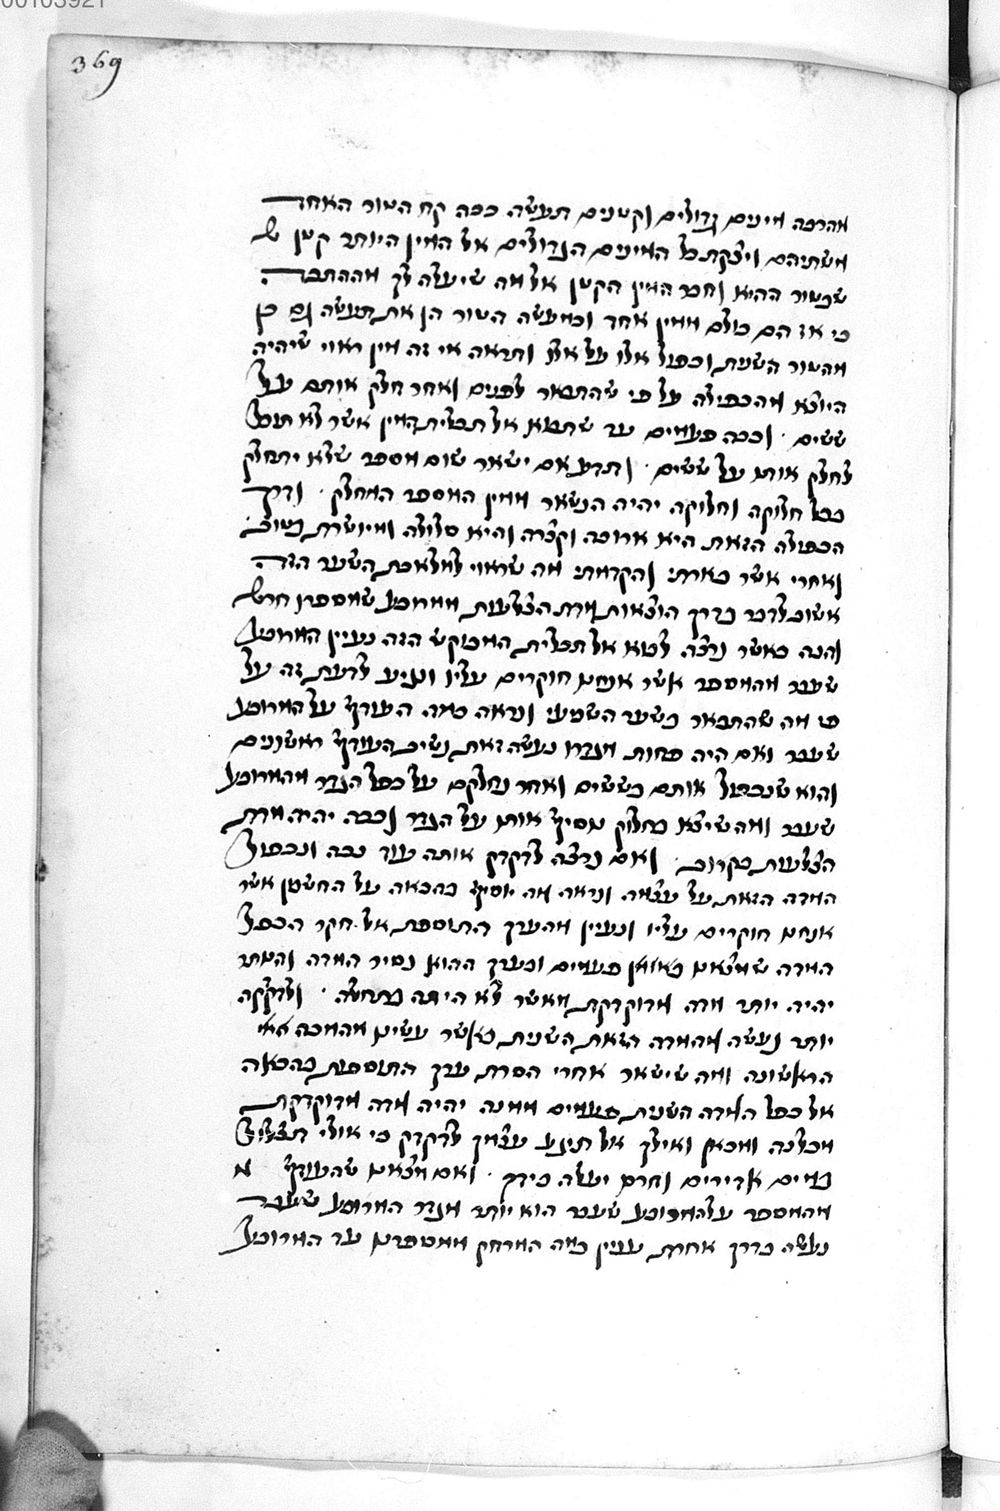 00103921
369
מהרבה מינים גדולים וקטנים תעשה ככה קח השור האחד
משתיהם ויצקת כל המינים הגדולים אל המין היותר קטן ש
שבטור ההיא וחבר המין הקטן אל מה שיעלה לך מההתכה
כי אז הם כולם ממין אחד וכמעשה הטור הן את תעשה גם כן
מהטור השנית וכפול אלו על אלו ותראה אי זה מין ראוי שיהיה
היוצא מהכפילה על פי שהתבאר לפנים ואחר חלק אותם על
ששים . וככה פעמים עד שתבוא אל תכלית המין אשר לא תוכל
לחלק אותו על ששים . ותדע אם ישאר שום מספר שלא יתחלק
בכל חלוקה וחלוקה יהיה הנשאר ממין המספר המחלק . ודרך
הכפולה הזאת היא ארוכה וקצרה והיא סלולה ומיושרת בטוב .
ואחרי אשר בארתי והקדמתי מה שראוי למלאכת השער הזה
אשוב לדבר בדרך הוצאות מדת הצלעות ממרובע שמספרו חרש
והנה כאשר נרצה לבוא אל תכלית המבוקש הזה נעיין המרובע
שעבר מהמספר אשר אנחנו חוקרים עליו ונגיע לדעת זה על
פי מה שהתבאר בשער השמיני ונראה כמה העודף על המרובע
שעבר ואם היה פחות מגדרו נעשה זאת נשיב העודף ראשונים
והוא שנכפול אותם בששים ואחר נחלקם על כפל הגדר מהמרובע
שעבר ומה שיצא בחלוק נוסיף אותו על הגדר וככה יהיה מדת
הצלעות בקרוב . ואם נרצה לדקדק אותה עוד נכה ונכפול
המדה הזאת על עצמה ונראה מה יוסיף בהכאה על החשבון אשר
אנחנו חוקרים עליו ונעיין מהערך התוספת אל חקר הכפל
המדה שמצאנו באותן פעמים וכערך ההוא נסיר המדה והנותר
יהיה יותר מדה מדוקדקת מאשר לא היתה בתחלה . ולדקקה
יותר נעשה מהמדה הזאת השנית כאשר עשינו מהמכה אתי
הראשונה ומה שישאר אחרי הסרת ערך התוספת בהכאה
אל כפל המדה השנית פעמים ממנה יהיה מדה מדוקדקת
מכלנה ומכאן ואילך אל תיגע עצמך לדקדק כי אולי תצלול
במים אדירים וחרס יעלה בידך . ואם מצאנו שהעודף מ
מהמספר על המרובע שעבר הוא יותר מגדר המרובע שעבר
נעשה בדרך אחרת נעיין כמה המרחק ממספרנו עד המרובע